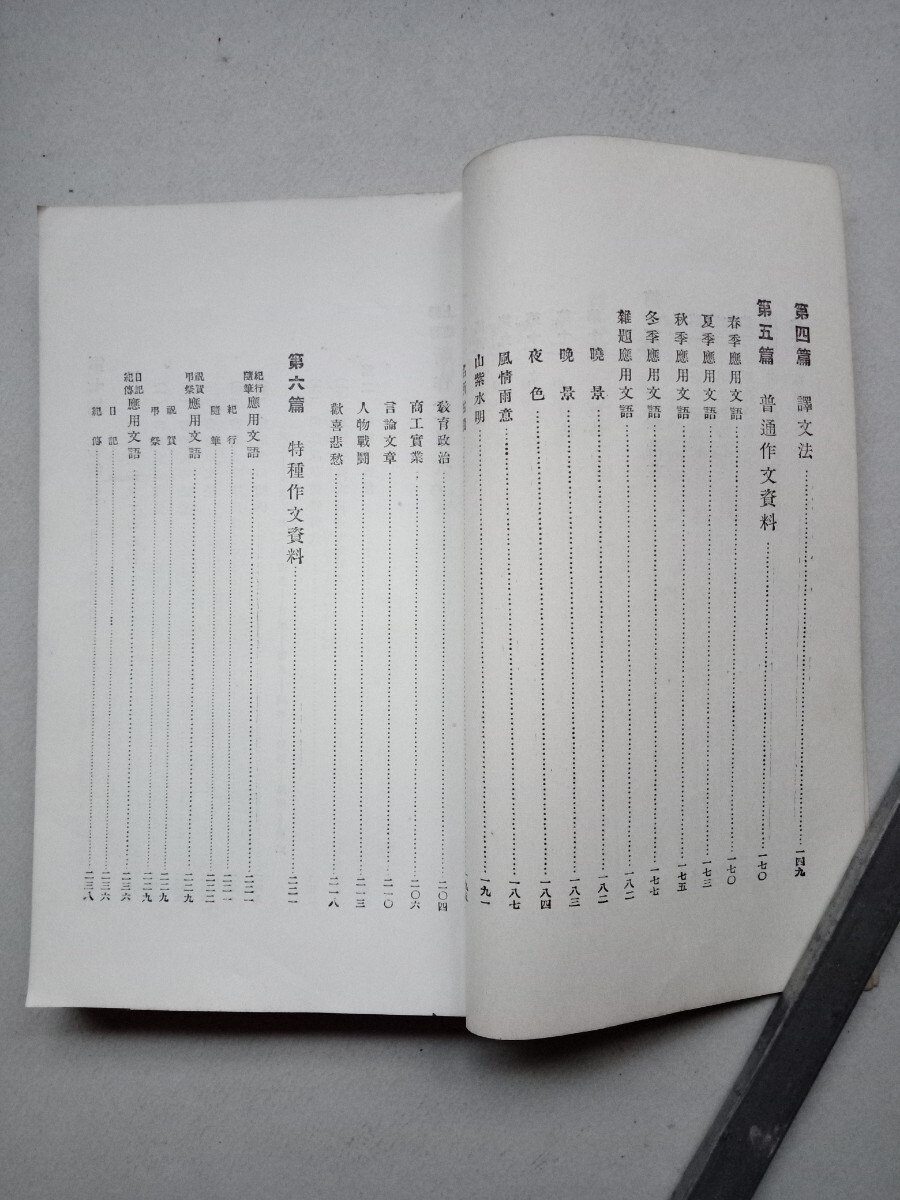 第四篇 譯文法…一四九
第五篇 普通作文資料…一七〇
春季應用文語…一七〇
夏季應用文語…一七三
秋季應用文語…一七五
冬季應用文語…一七七
雜題應用文語…一八二
曉景…一八二
晚景…一八三
夜色…一八四
風情雨意…一八七
山紫水明…一九一
敎育政治…二〇四
商工實業…二〇六
言論文章…二一〇
人物戰鬪…二一三
歡喜悲愁…二一八
第六篇 特種作文資料…二二一
紀行隨筆應用文語…二二一
紀行…二二一
隨筆…二二二
祝賀弔祭應用文語…二二九
祝賀…二二九
弔祭…二二九
日記紀傳應用文語…二三六
日記…二三六
紀傳…二三八